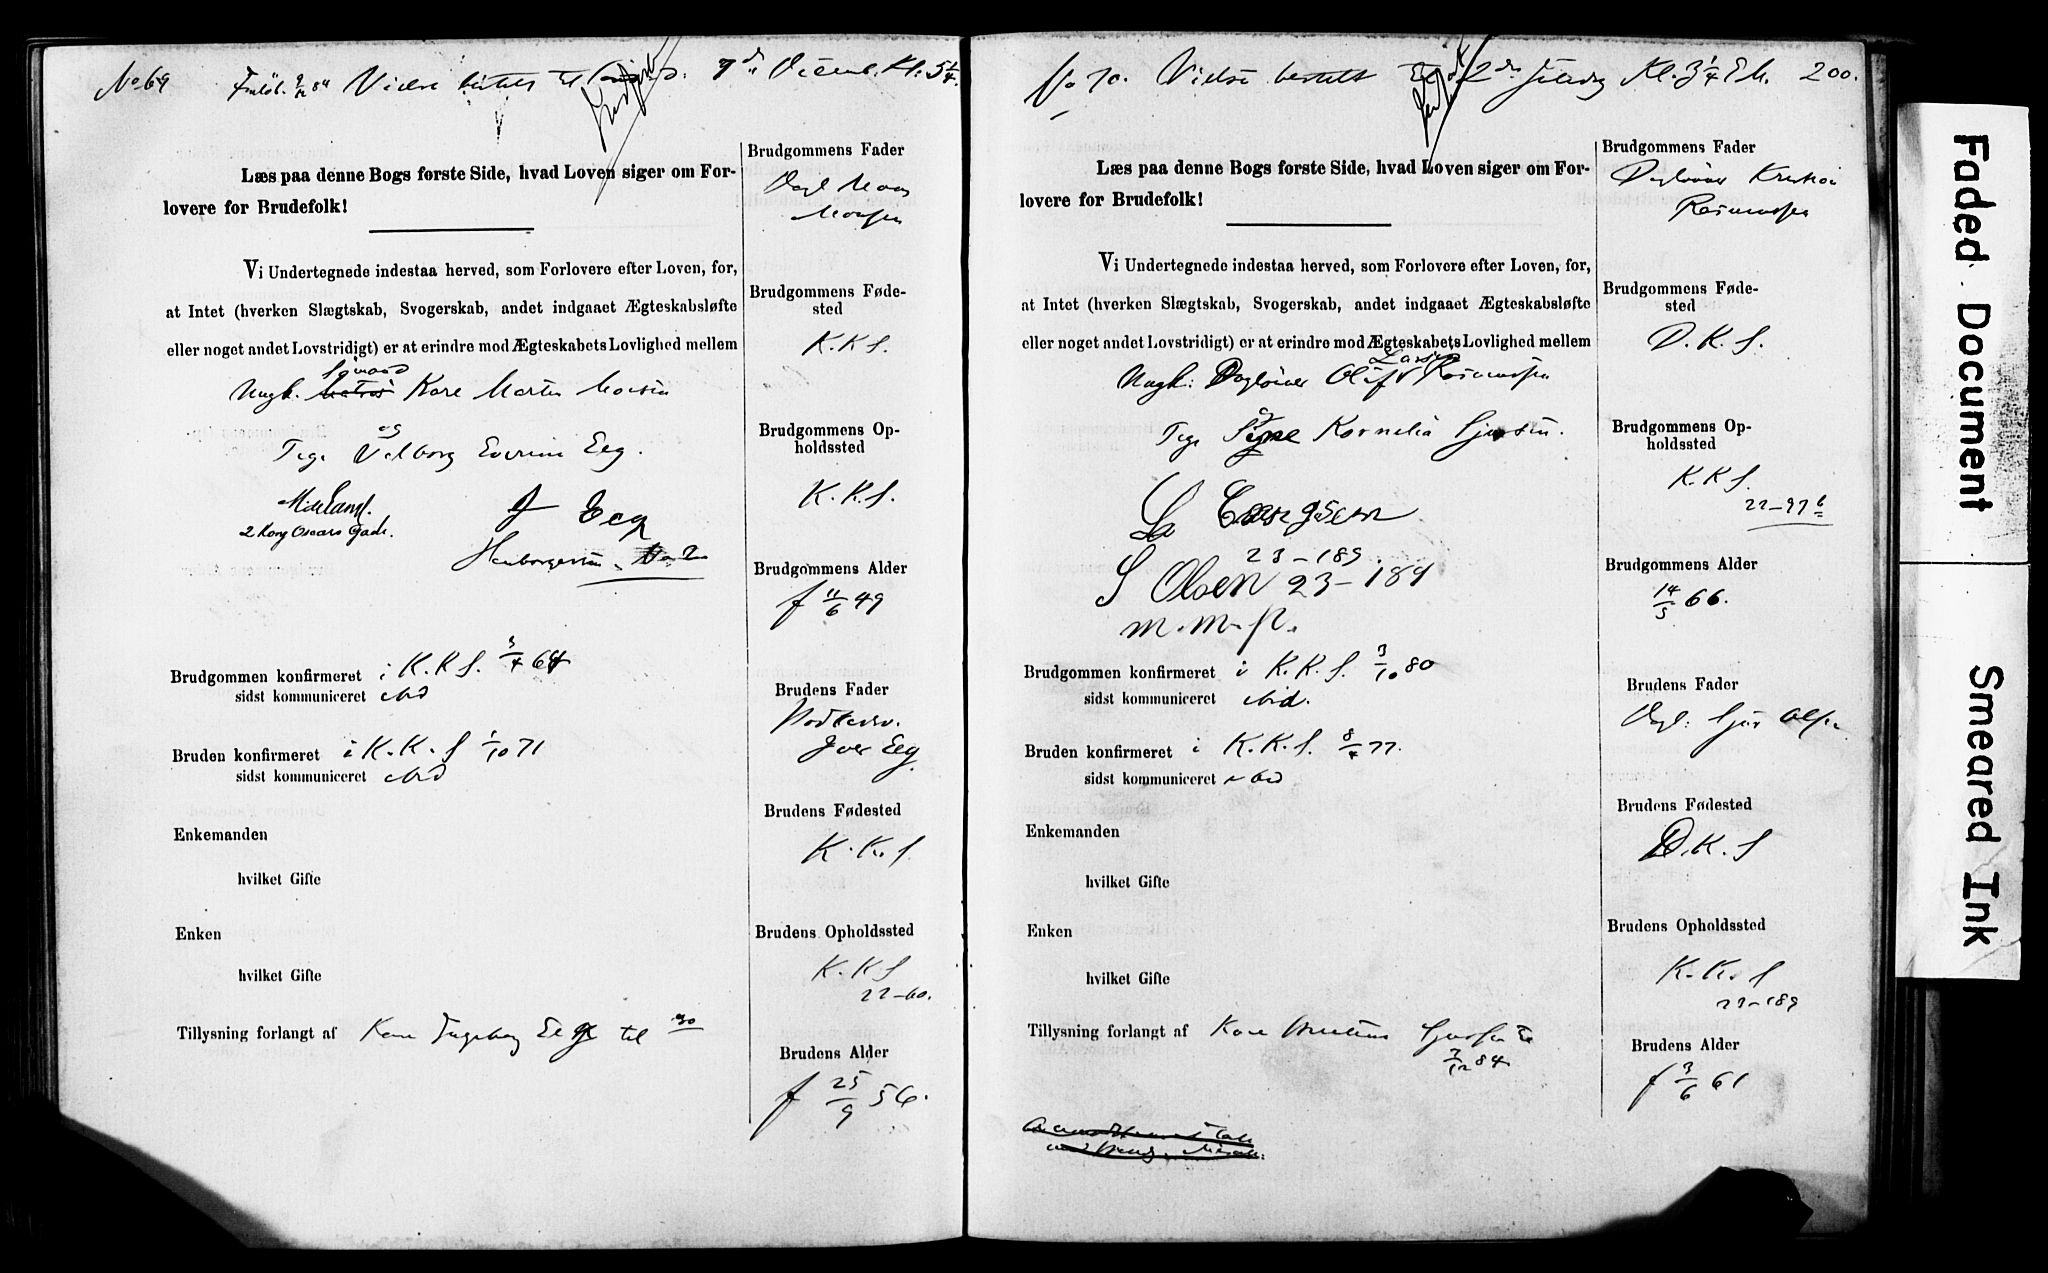 No 69 Vielse Kl. 5 1/4.
Læs paa denne Bogs første Side, hvad Loven siger om For-
lovere for Brudefolk!
Vi Undertegnede indestaa herved, som Forlovere efter Loven, for,
at Intet (hverken Slægtskab, Svogerskab, andet indgaaet Ægteskabsløfte
eller noget andet Lovstridigt) er at erindre mod Ægteskabets Lovlighed mellem
Ungk. Kare Martin Monsen
og
Pige Valborg Eeg.
2 Kong Oscars Gade.
J Eeg
No 2
Brudgommen konfirmeret i K.K.S. 3/4 64
sidst kommuniceret ibid
Bruden konfirmeret i K.K.S 1/10 71
sidst kommuniceret ibid
Enkemanden
hvilket Gifte
Enken
hvilket Gifte
Tillysning forlangt af Ingeborg Eeg til
Brudgommens Fader
Mons
Monsen
Brudgommens Føde-
sted
K.K.S.
Brudgommens Op-
holdssted
K.K.S.
Brudgommens Alder
f 11/6 49
Brudens Fader
Iver Eeg
Brudens Fødested
K.K.S.
Brudens Opholdssted
K.K.S
22-60.
Brudens Alder
f 25/9 56.
No 70. Vielse bestilt 2den Juledag Kl. 3 1/4 Em. 200.
Læs paa denne Bogs første Side, hvad Loven siger om For-
lovere for Brudefolk!
Vi Undertegnede indestaa herved, som Forlovere efter Loven, for,
at Intet (hverken Slægtskab, Svogerskab, andet indgaaet Ægteskabsløfte
eller noget andet Lovstridigt) er at erindre mod Ægteskabets Lovlighed mellem
Larsen
Ungk: Dagleier Oluf Rasmussen
og
Pige Signe Kornelia Sjursen.
23-189
S Olsen 23-189
m.m.p.
Brudgommen konfirmeret i K.K.S. 3/10 80
sidst kommuniceret ibid.
Bruden konfirmeret i K.K.S. 8/4 77.
sidst kommuniceret ibid
Enkemanden
hvilket Gifte
Enken
hvilket Gifte
Tillysning forlangt af Sjursen
7/12 84
Brudgommens Fader
Rasmussen
Brudgommens Føde-
sted
D.K.S.
Brudgommens Op-
holdssted
K.K.S.
22-97 b
Brudgommens Alder
14/5 66.
Brudens Fader
Dagl: Sjur Olsen
Brudens Fødested
D.K.S
Brudens Opholdssted
K.K.S
23-189
Brudens Alder
f 3/6 61
Faded Document
Smeared Ink